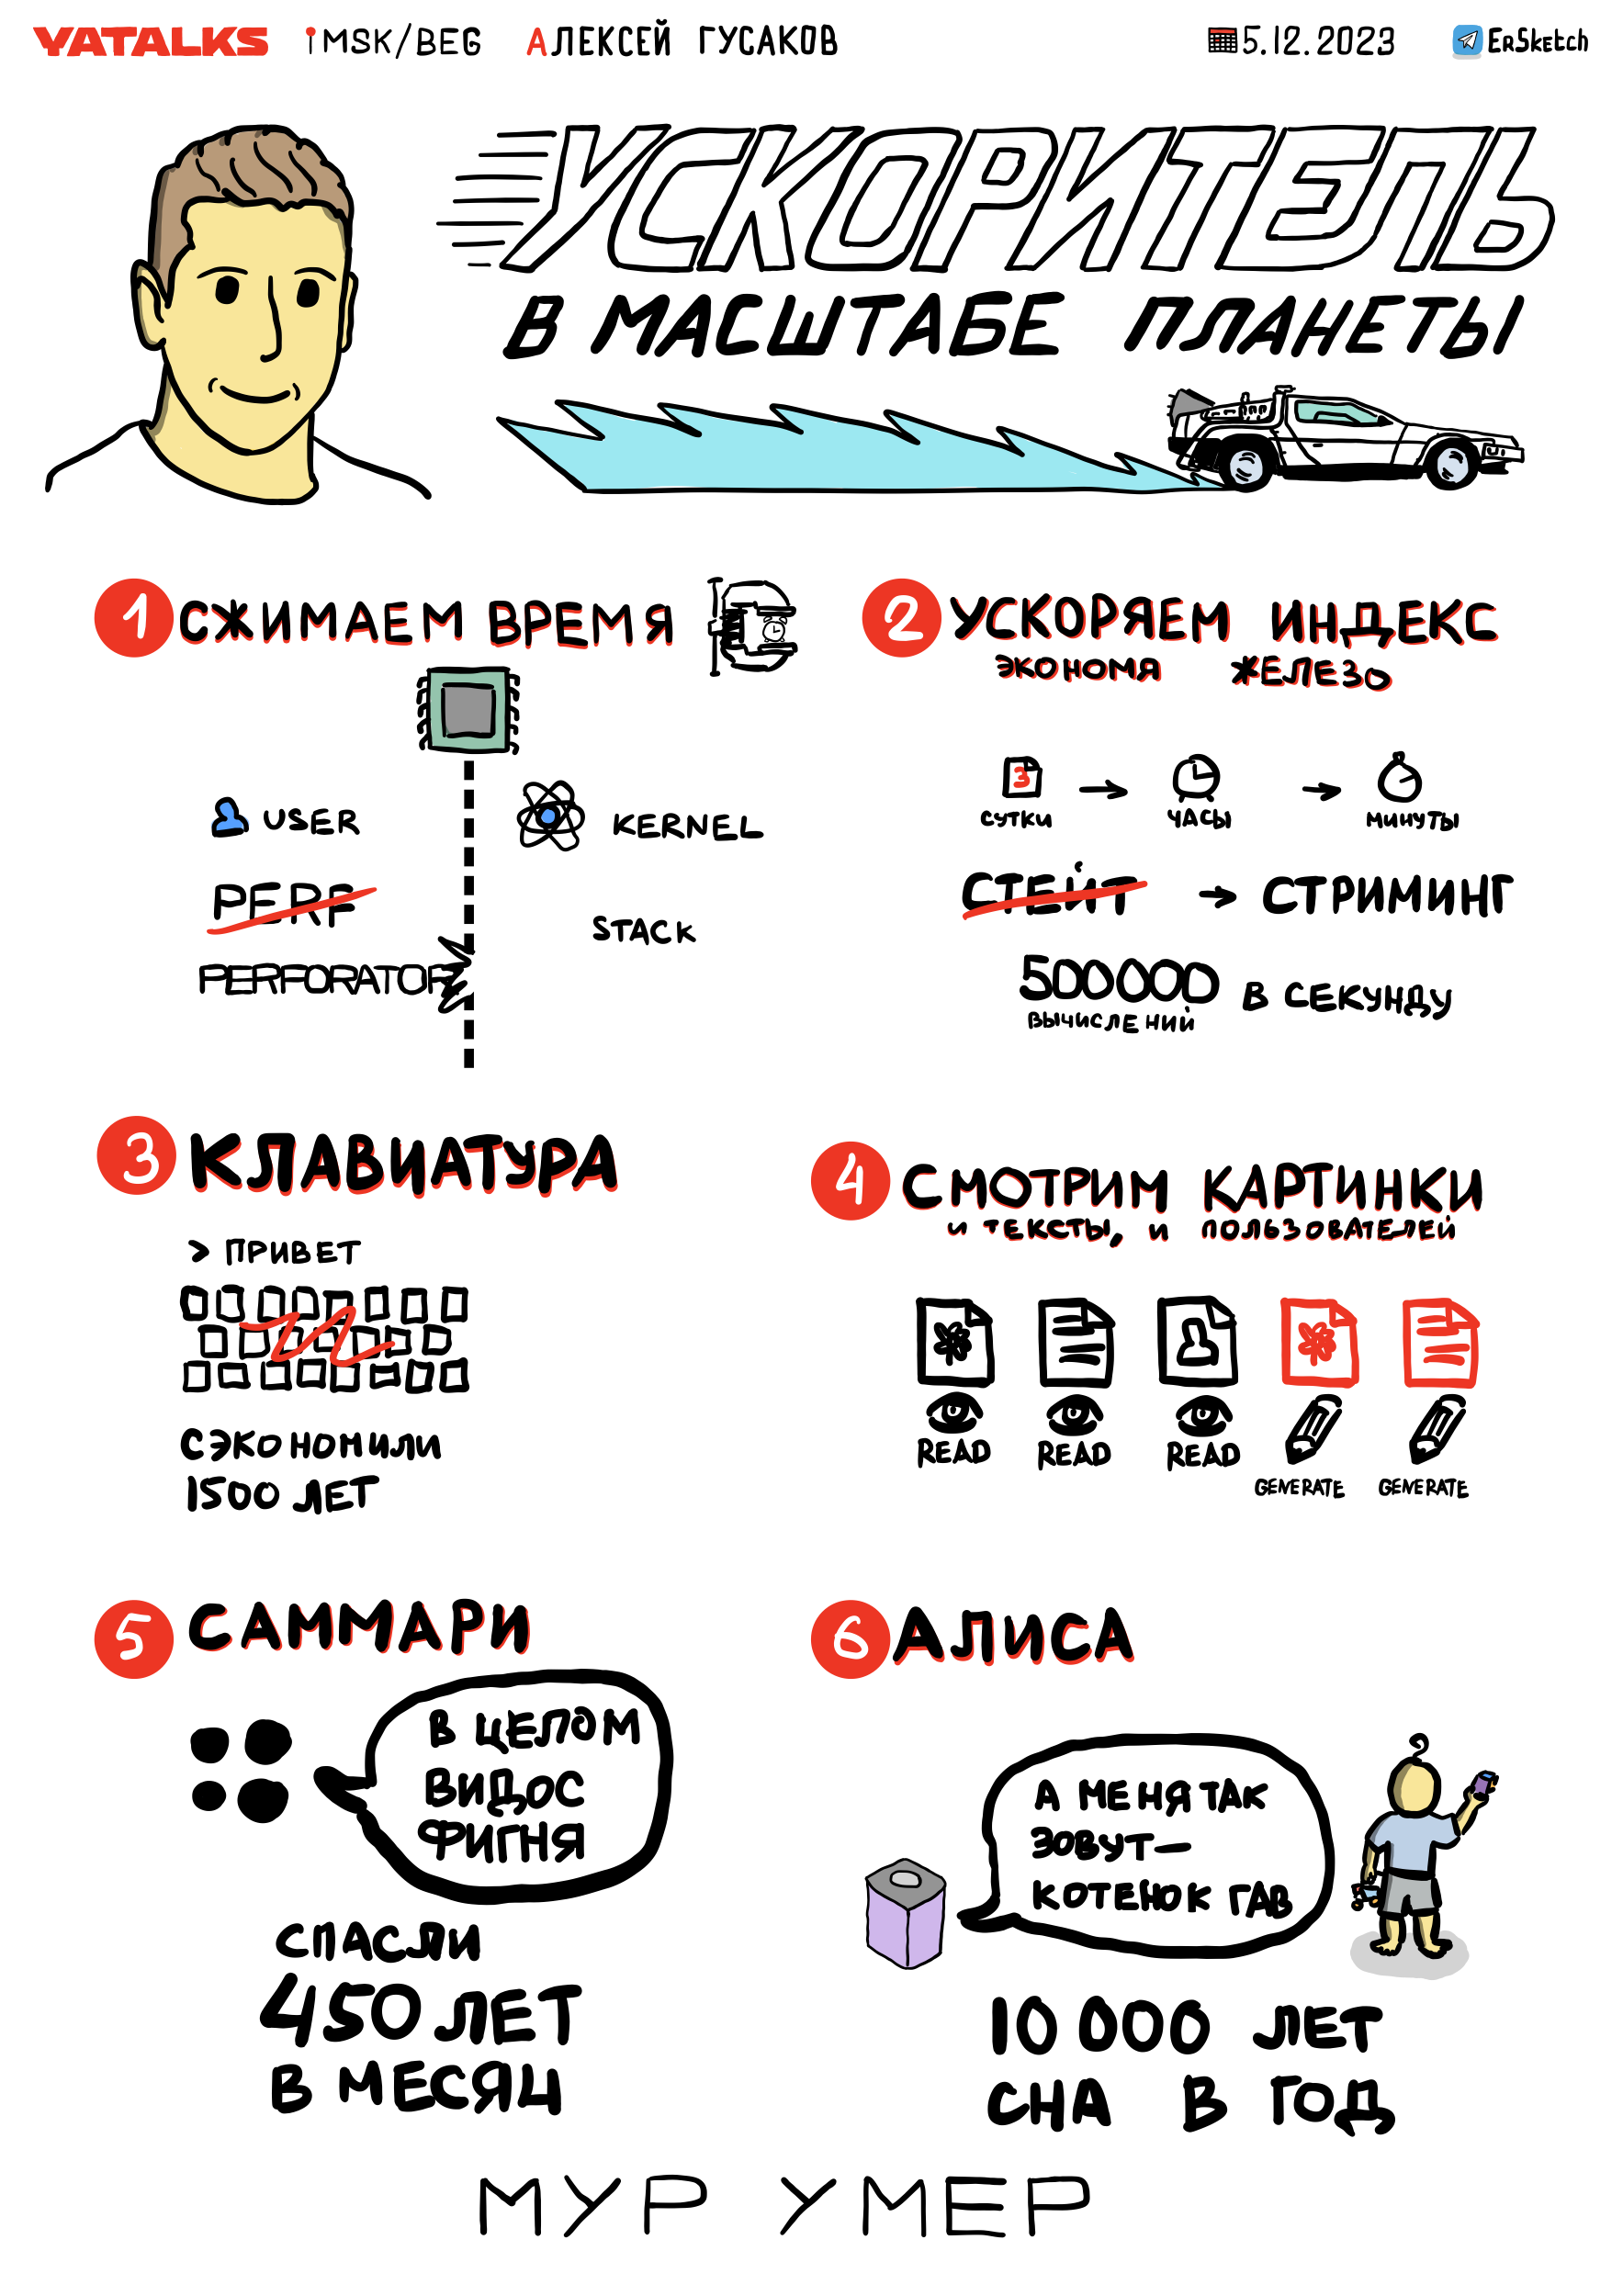 YATALKS MSK/BEG АЛЕКСЕЙ ГУСАКОВ 5.12.2023 ERSKETCH
УСКОРИТЕЛЬ
В МАСШТАБЕ ПЛАНЕТЫ
1 СЖИМАЕМ ВРЕМЯ
USER KERNEL
PERF
STACK
PERFORATOR
2 УСКОРЯЕМ ИНДЕКС
ЭКОНОМЯ ЖЕЛЕЗО
3
СУТКИ → ЧАСЫ → МИНУТЫ
СТЕЙТ → СТРИМИНГ
500000 В СЕКУНДУ
ВЫЧИСЛЕНИЙ
3 КЛАВИАТУРА
> ПРИВЕТ
СЭКОНОМИЛИ
1500 ЛЕТ
4 СМОТРИМ КАРТИНКИ
И ТЕКСТЫ, И ПОЛЬЗОВАТЕЛЕЙ
READ READ READ GENERATE GENERATE
5 САММАРИ
В ЦЕЛОМ
ВИДОС
ФИГНЯ
СПАСЛИ
450 ЛЕТ
В МЕСЯЦ
6 АЛИСА
А МЕНЯ ТАК
ЗОВУТ—
КОТЕНОК ГАВ
10 000 ЛЕТ
СНА В ГОД
МУР УМЕР